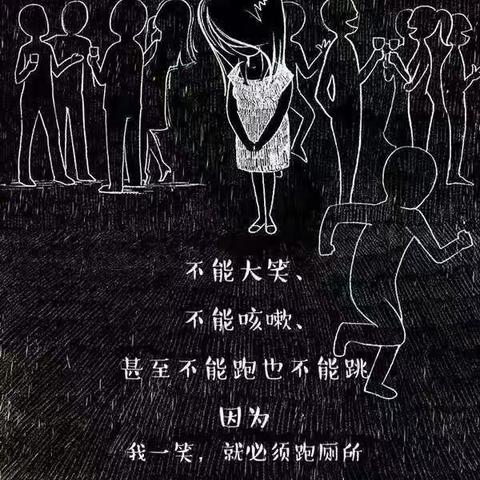 不能大笑、
不能咳嗽、
甚至不能跑也不能跳
因为
我一笑，就必须跑厕所